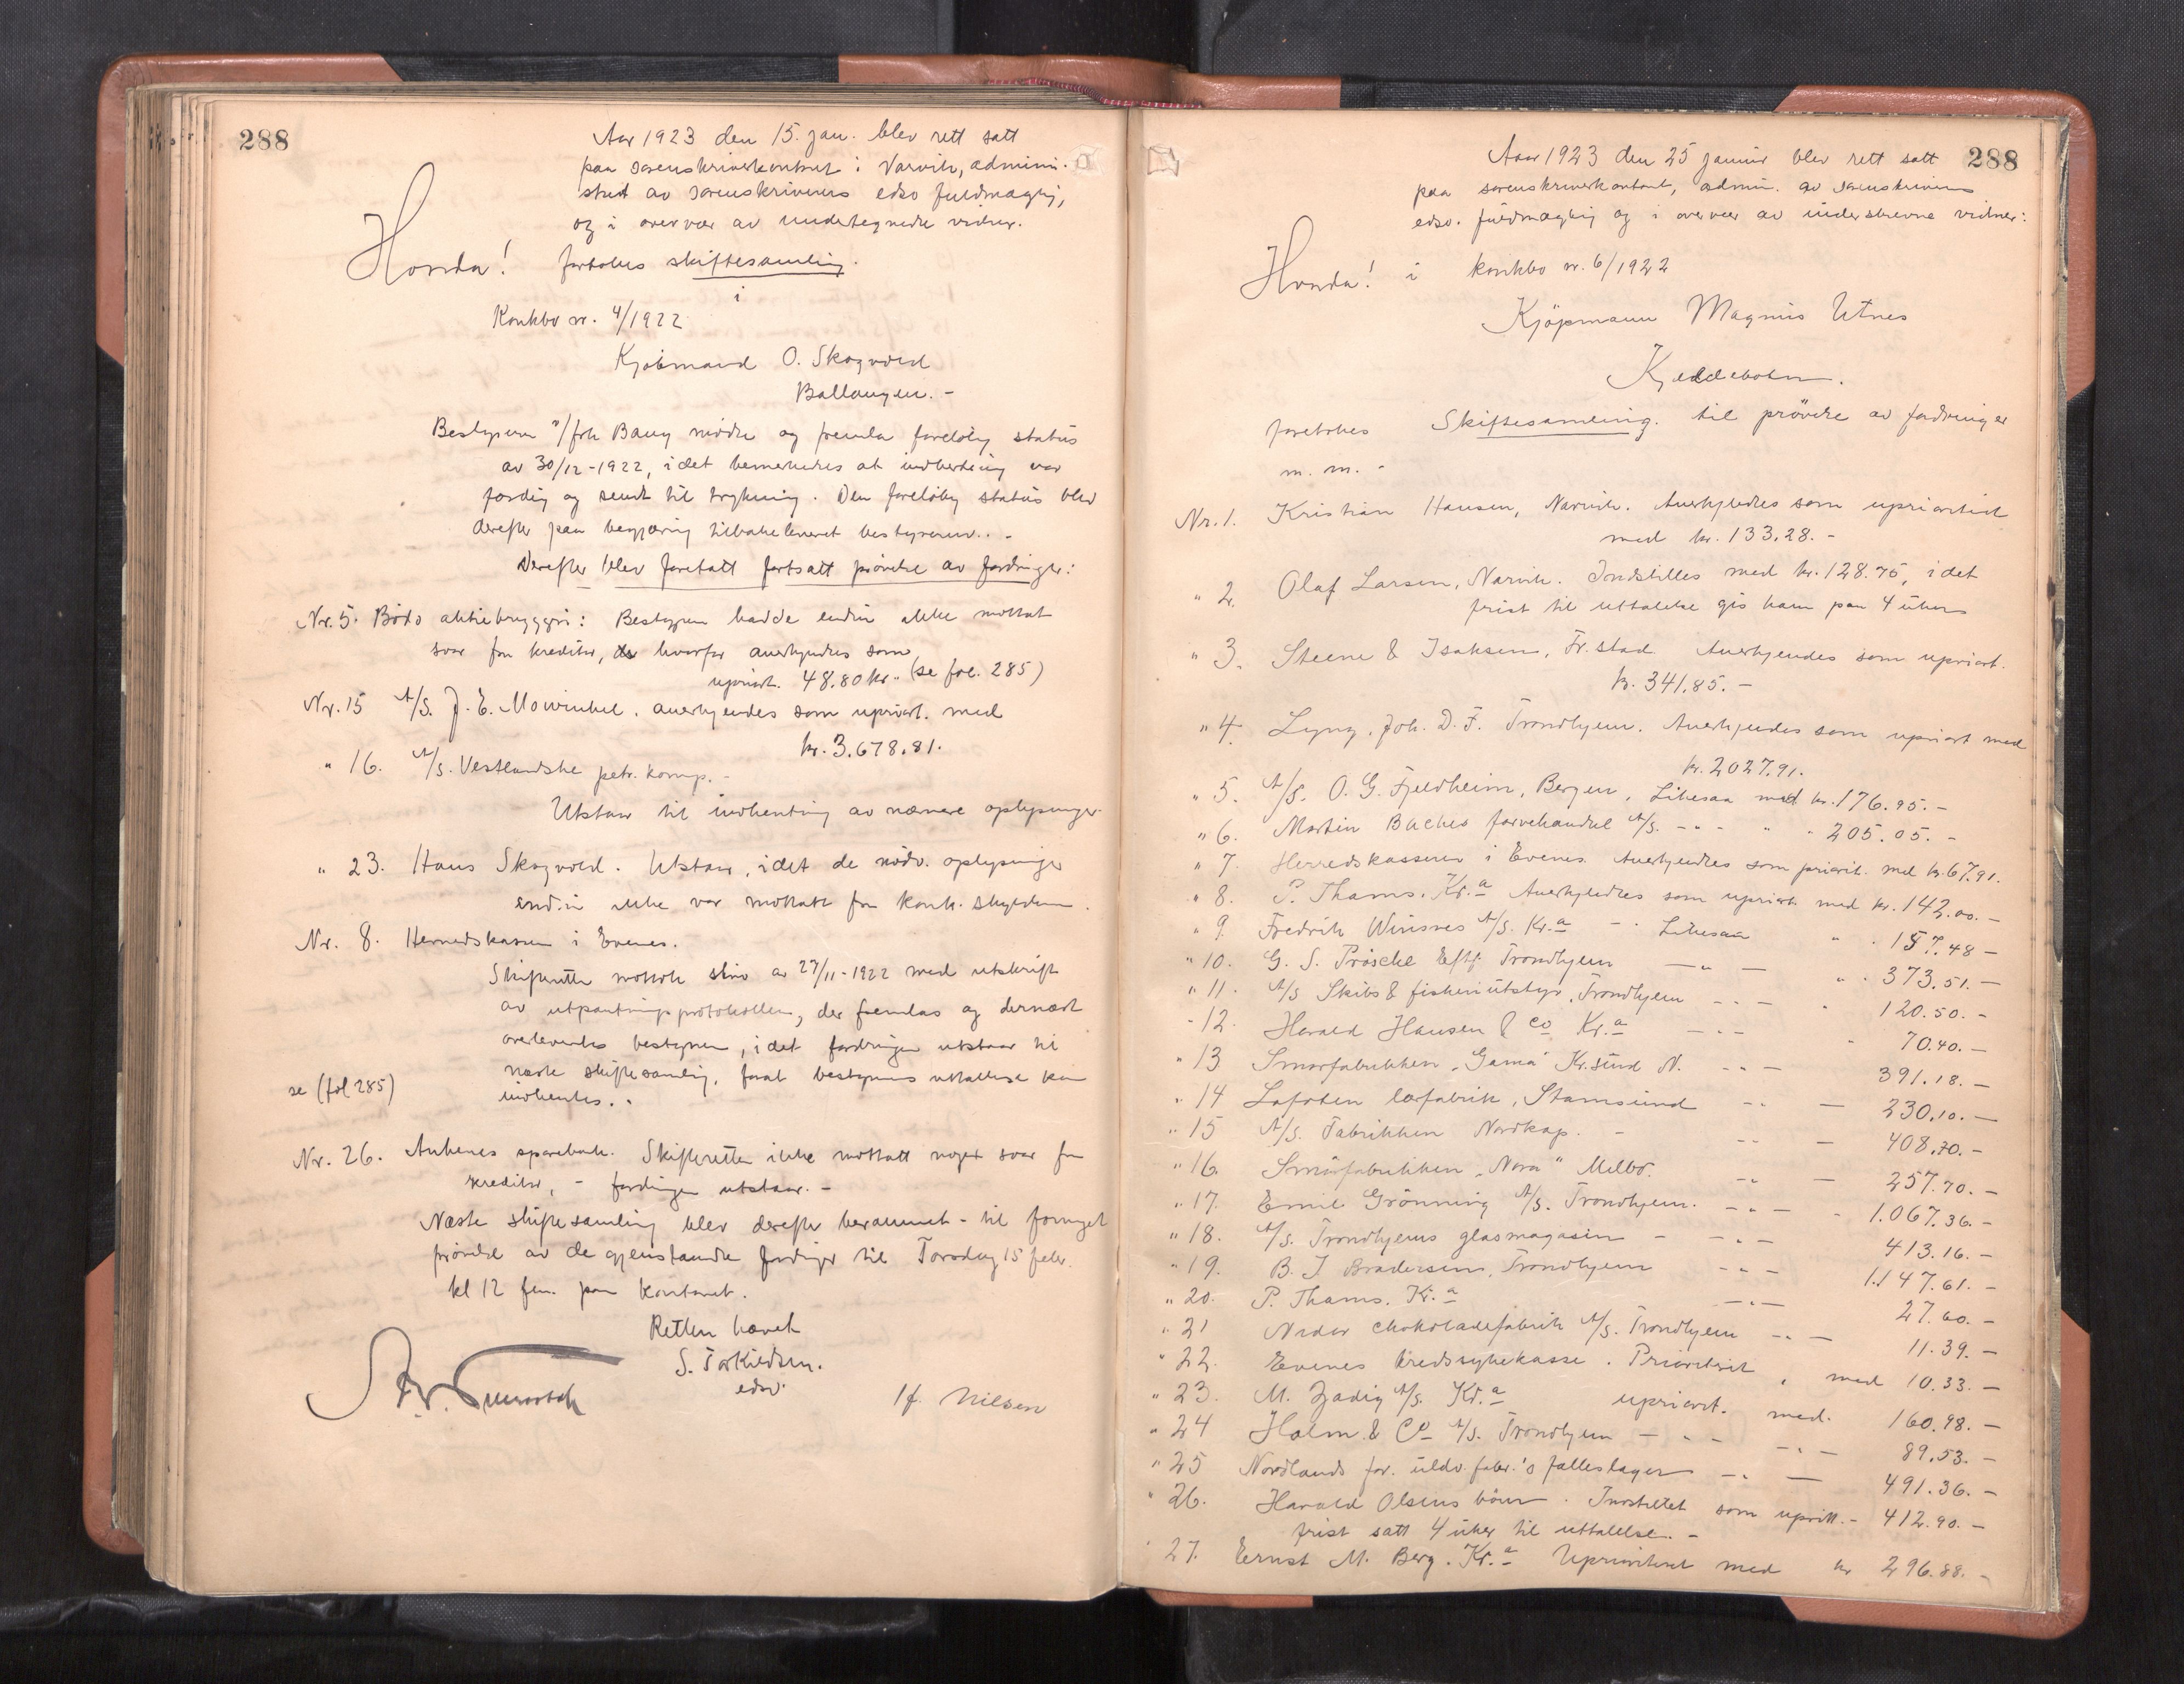 288
Aar 1923 den 15. jan. blev rett satt
paa sorenskriverkontoret i Narvik, admini-
stret av sorenskriverens edsv fuldmægtig,
og i overvær av undertegnede vidner.
Honda! foretokes skiftesamling.
i
Konkbo nr. 4/1922
Kjøbmand O. Skogvold
Ballangen. -
Bestyreren o/frk Bang mødte og fremla foreløbig status
av 30/12-1922, idet bemerkedes at indberetning var
færdig og sendt til trykning. Den foreløbig status blev
derefter paa begjæring tilbakeleveret bestyreren. . -
Derefter blev foretatt fortsatt prøvelse av fordringer:
Nr. 5. Bodø aktiebryggeri: Bestyreren hadde endnu ikke mottat
svar fra kreditor, hvorfor anerkjendes som
upriort. 48.80 kr. (se fol. 285)
Nr. 15 A/S. J. E. Mowinkel. anerkjendes som upriort. med
kr. 3.678,81.
" 16. A/S. Vestlandske petr. komp. -
Utstaar til indhenting av nærmere oplysninger.
" 23. Hans Skogvold. Utstaar, idet de nødv. oplysninger
endnu ikke var mottatt fra konk. skyldneren.
Nr. 8. Herredskassen i Evenes.
Skifteretten mottok skriv av 27/11-1922 med utskrift
av utpantningsprotokollen, der fremlas og dernæst
overleveredes bestyreren, idet fordringen utstaar til
næste skiftesamling, forat bestyrerens uttallelse kan
se (fol 285) indhentes. .
Nr. 26. Ankenes sparebank. Skifteretten ikke mottatt noget svar fra
kreditor, - fordringen utstaar. -
Næste skiftesamling blev derefter berammet - til fornyet
prøvelse av de gjenstaaende fordringer til Torsdag 15 febr.
kl 12 fm. paa kontoret.
Retten hævet
S. Torkildsen.
edsv.
H. Nilsen
288
Aar 1923 den 25 januar blev rett satt
paa sorenskriverkontoret, admin. av sorenskriverens
edsv. fuldmægtig og i overvær av underskrevne vidner:
Honda! i konkbo nr. 6/1922
Kjöpmann Magnus Utnes
Kjeldebotn.
foretokes Skiftesamling. til prövelse av fordringer
m. m. -
Nr. 1. Kristian Hansen, Narvik. Anerkjendes som uprioritert
med kr. 133.28. -
" 2. Olaf Larsen, Narvik. Indstilles med kr. 128.75, idet
frist til uttalelse gis ham paa 4 uker
" 3. Steene & Isaksen, Fr.stad Anerkjendes som upriort.
kr. 341,85. -
" 4. Lyng, Joh. D. F. Trondhjem. Anerkjendes som upriort med
kr. 2027,91.
" 5. A/S. O. G. Fjeldheim, Bergen, Likesaa med kr. 176.95. -
" 6. Martin Baches farvehandel A/S. - " - " " 205.05. -
" 7. Herredskassen i Evenes. Anerkjendes som priorit. med kr. 67,91.
" 8. P. Thams. Kr.a Anerkjendes som upriort. med kr. 142.00. -
" 9. Fredrik Winsnes A/S. Kr.a - . Likesaa " " 157.48 -
" 10. G. S. Pröschel Eftf. Trondhjem - " - " " 373.51. -
" 11. A/S Skibs & fiskeriutstyr, Trondhjem - " - " 120.50. -
" 12. Harald Hansen & Co Kr.a - " - " 70.40. -
" 13 Smörfabrikken "Gama" Kr.sund N. - " - 391.18. -
" 14 Lofoten lærfabrik, Stamsund - " - 230,10. -
" 15 A/S. Fabrikken Nordkap. - - " - 408,70. -
" 16. Smörfabrikken "Nora" Melbo. - " - 257.70. -
" 17. Emil Grönning A/S. Trondhjem. - " - " 1.067,36. -
" 18. A/S. Trondhjems glasmagasin - - " - 413.16. -
" 19. B. J Brodersens, Trondhjem - " - 1.147,61. -
" 20. P. Thams. Kr.a - " - 27.60. -
" 21 Nidar chokoladefabrik A/S. Trondhjem - " - 11.39. -
" 22. Evenes kredssykekasse. Prioritert , med 10.33. -
" 23. M. Zadig A/S. Kr.a upriort. med. 160.98. -
" 24 Holm & Co A/S. Trondhjem - " - - " - 89.53. -
" 25 Nordlands for. uldv. fabr.'s fælleslager - " - 491.36. -
" 26. Harald Olsens bönn. Indstillet som upriort. - 412.90. -
frist satt 4 uker til uttalelse. -
" 27. Ernst M. Berg. Kr.a Uprioritert med kr 296.88. -